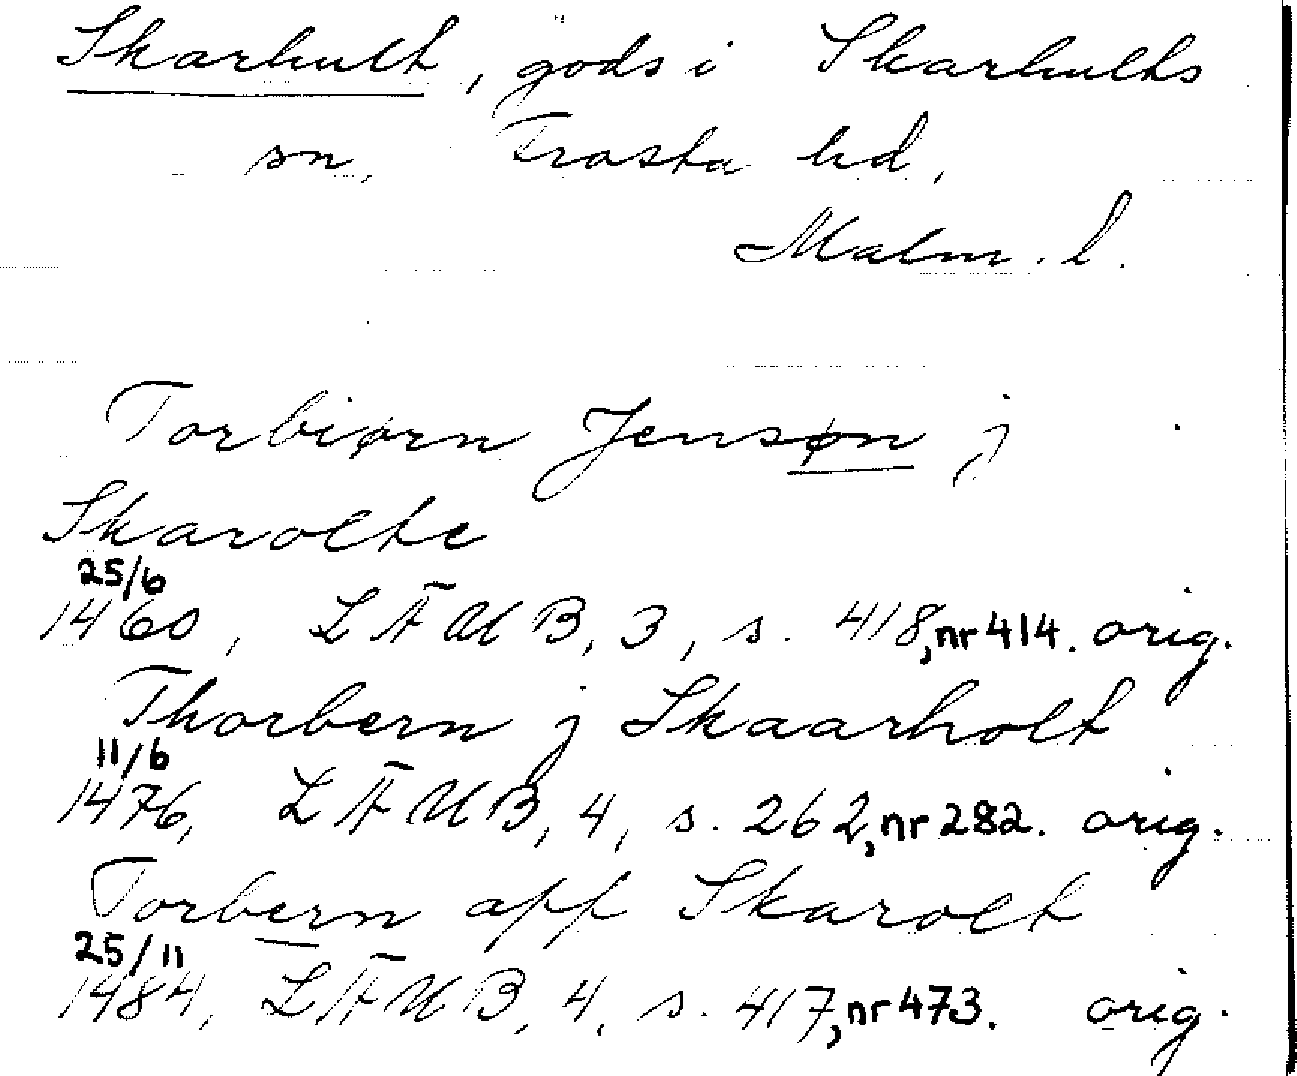 Skarhult, gods i Skarhults
sn, Frosta hd,
Malm. l.
Torbiørn Jensøn j
Skarolte
25/6
1460, LÄUB, 3, s. 418, nr 414. orig.
Thorbern j Skaarholt
11/6
1476, LÄUB, 4, s. 262, nr 282. orig.
Torbern aff Skarolt
25/11
1484, LÄUB, 4, s. 417, nr 473. orig.